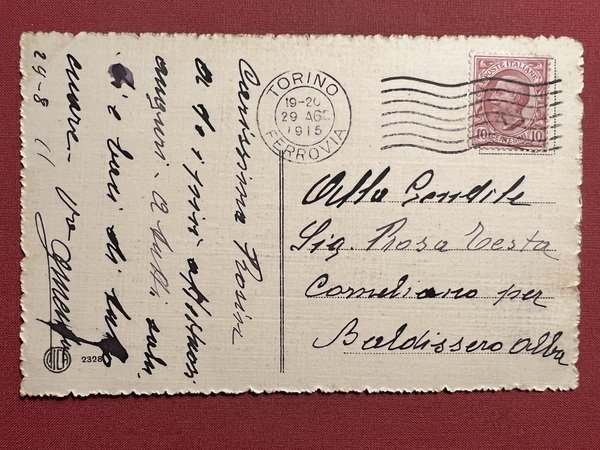 Carissima Rosina
A te i miei affettuosi
auguri - A tutti saluti
e baci di tutto
cuore - Tuo
29-8
2328
TORINO
19-20
29 AGO
1915
FERROVIA
POSTE ITALIANE
10 10
Alla Gentile
Sig. Rosa Testa
Corneliano per
Baldissero Alba